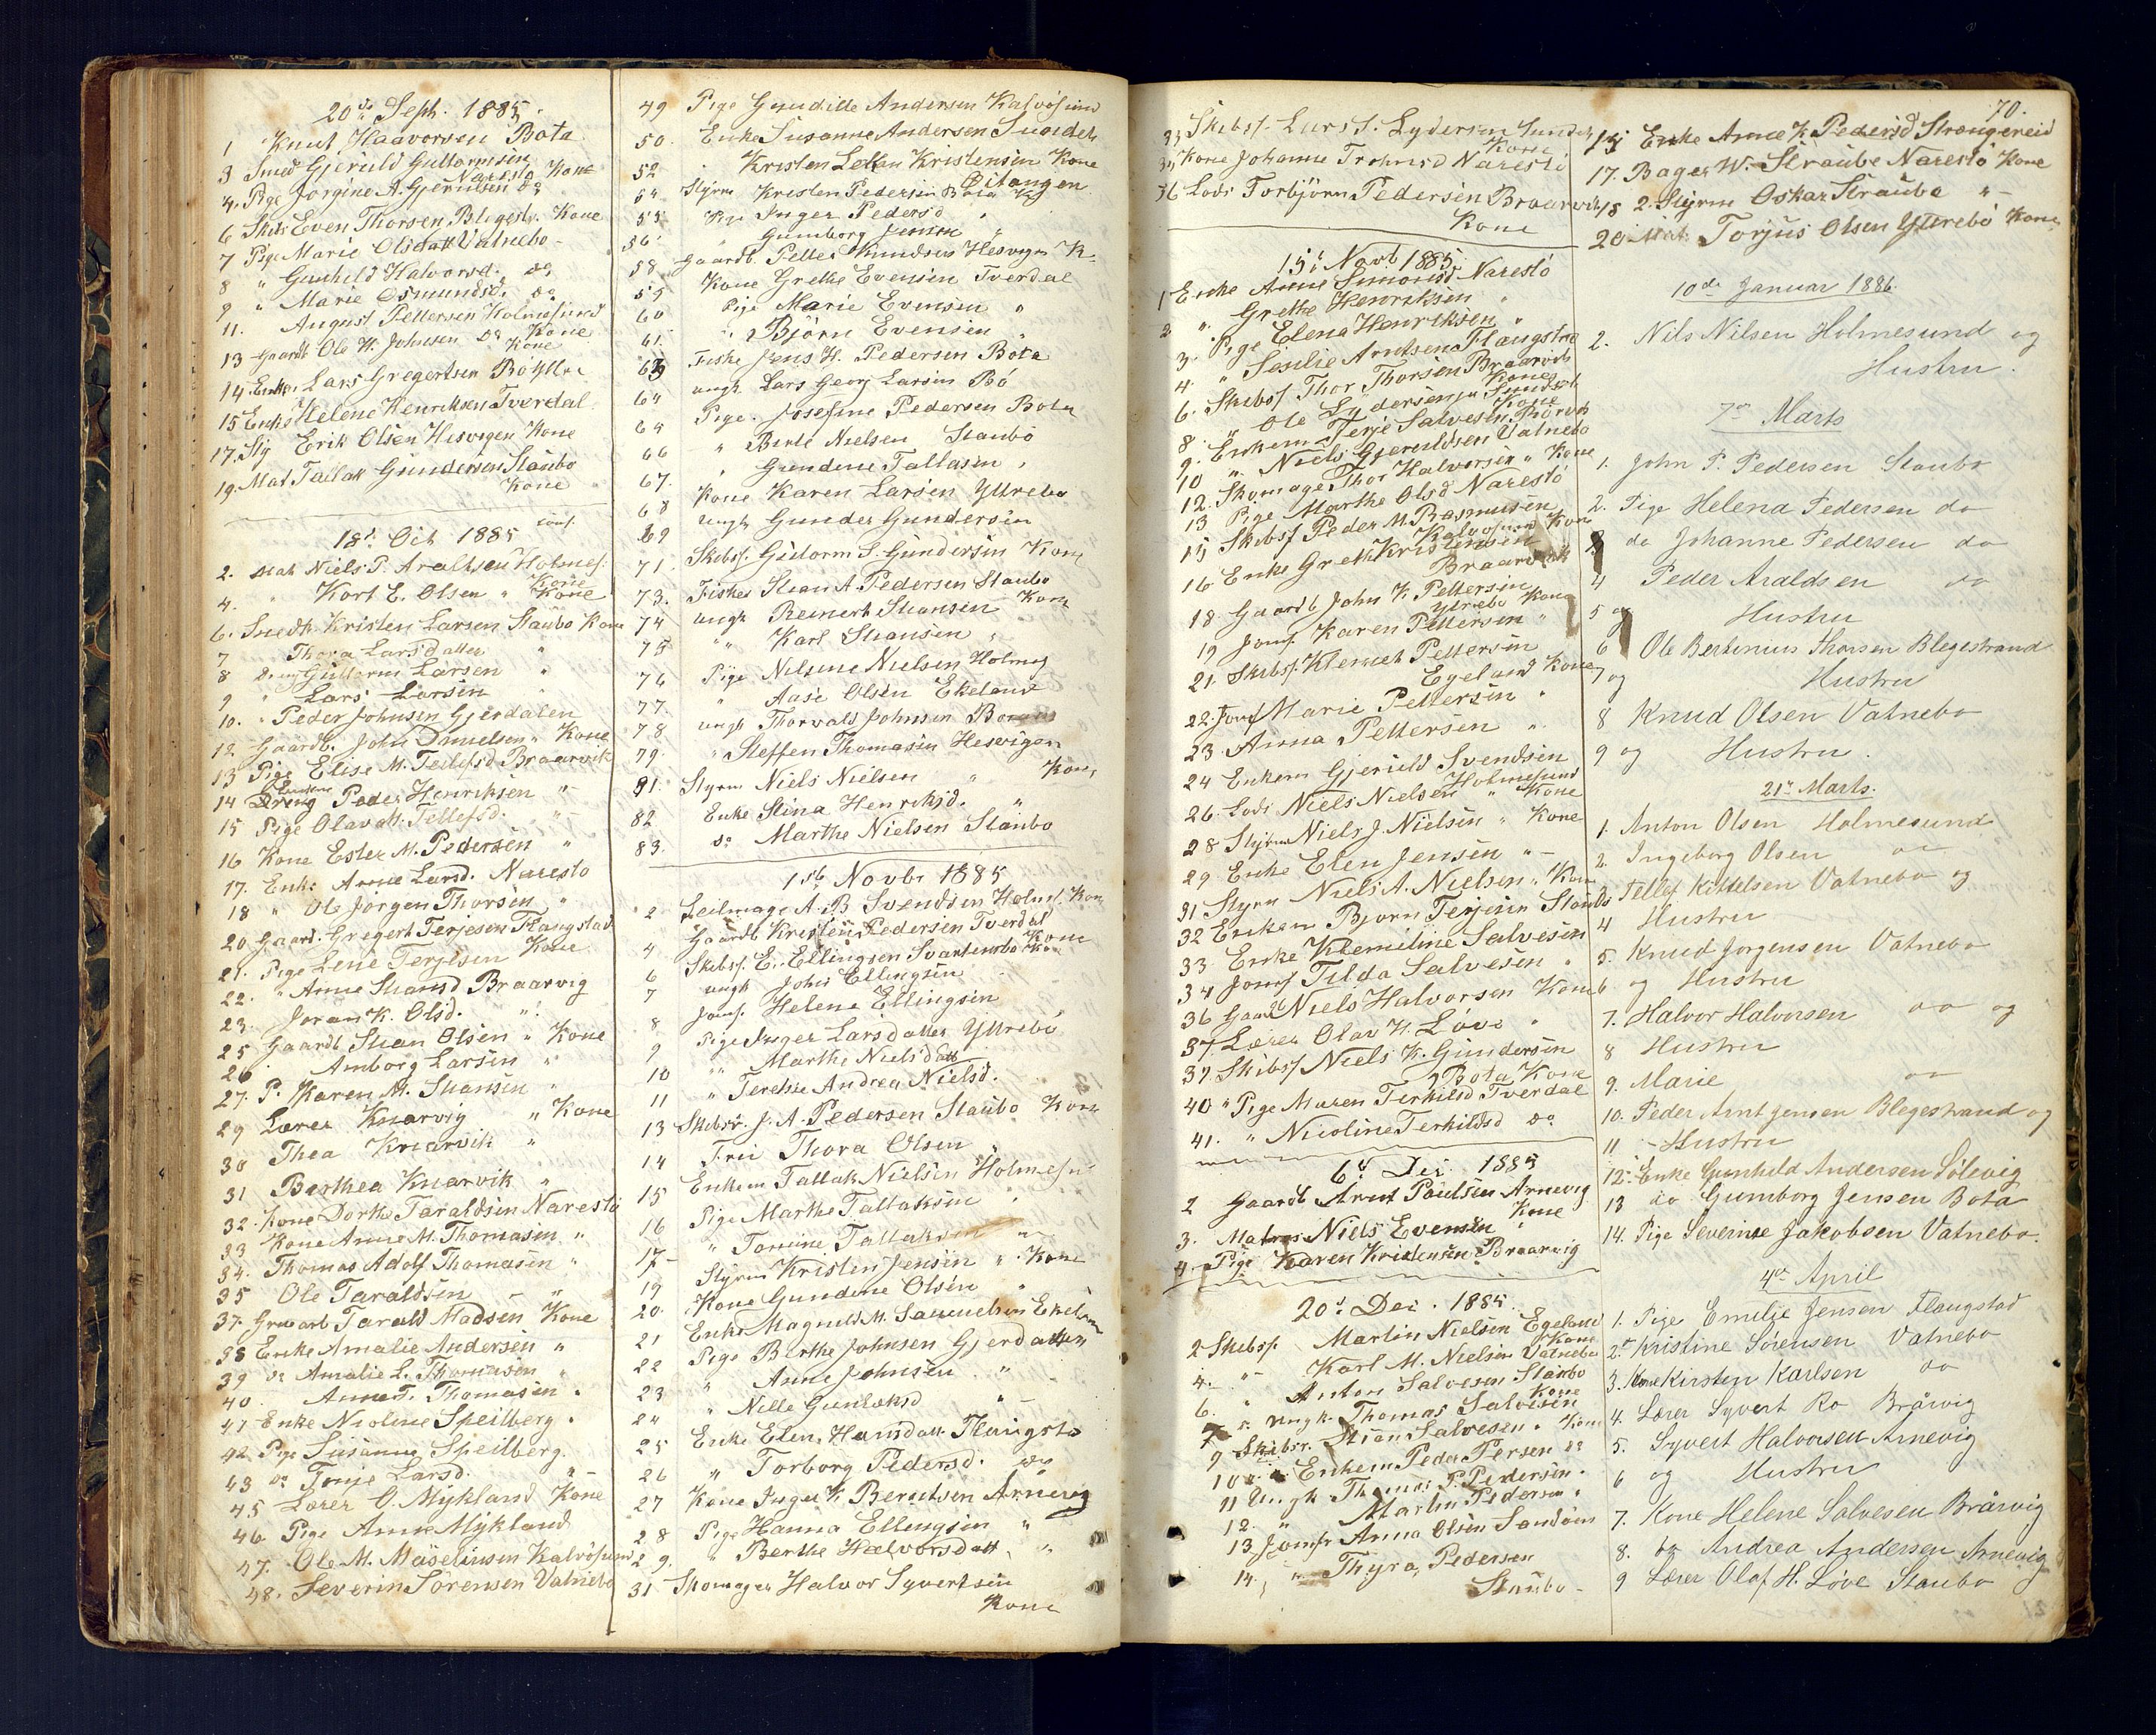 20de Septr. 1885.
1 Knut Haavorsen Bota
3 Smed Gjeruld Guttormsen
Naresto Kone
4. Pige Jorgine A. Gjerulsen do
6 Skibs Even Thorsen Blegestr. Kone
7 Pige Marie Olsdatt Vatnebo
8 " Gunhild Halvorsd. do
9 " Marie Osmundsd. do
11. August Pettersen Holmesund
Kone
13 Gaardb Ole H. Johnsen do Kone
14 Enkem Lars Gregertsen Bo
15 Enke Helene Henriksen Tverdal
17. Sty Erik Olsen Hesvigen Kone
19. Mat Tallak Gundersen Staubo
Kone
18d. Oct 1885
2. Mat Niels P. Araldsen Holmes.
Kone
4. " Karl E. Olsen " Kone
6. Smedk Kristen Larsen Staubo Kone
7 Thora Larsdatter "
8 Guttorm Larsen "
9 " Lars Larsen "
10. " Peder Johnsen Gjerdalen
12 Gaardb. John Danielsen " Kone
13 Pige Elise M. Tellefsd Braarvik
14 Dreng Peder Henriksen "
15 Pige Olava M. Tellefsd. "
16 Kone Ester M. Pedersen "
17. Enke Anne Larsd. Naresto
18 " Ole Jörgen Thorsen "
20 Gaard. Gregert Terjesen Flangstad
Kone
21. Pige Lene Terjesen
22. " Anne Stiansd Braarvig
23. Joran K. Olsd. "
25 Gaardb Stian Olsen " Kone
26 Amborg Larsen "
27. P. Karen M. Stiansen "
29 Lærer Knarvig " Kone
30 Thea Knarvik "
31 Berthea Knarvik "
32. Kone Dorthe Taraldsen Naresto
33 Kone Anne M. Thomasen "
34. Thomas Adolf Thomasen "
35 Ole Taraldsen "
37. Tarald Madsen Kone
38 Enke Amalie Andersen "
39 do Amalie L. Thomasen "
40. Anne T. Thomasen "
41 Enke Nioline Speilberg "
42 Pige Susanne Speilberg
43 do Tonje Larsd. "
45 Lærer O. Mykland Kone
46. Pige Anne Mykland
47. Ole M. Kalvösund
48. Severin Sörensen Vatnebo
49 Pige Gundille Andersen Kalvösund
50. Enke Susanne Andersen
52 Kristen Kristensen Kone
54 Styrm Kristen Pedersen Bota K
55 Pige Inger Pedersd "
56 " Gumborg Jensen "
58 Gaardb. Petter Knudsen Hesvign K
59 Kone Grethe Evensen Tverdal
60 Pige Marie Evensen "
61. " Björn Evensen "
63 Fiske Jens H. Pedersen Bota
64 ungk Lars Georg Larsen Bö
65 Pige Josefine Pedersen Bota
66 " Berte Nielsen Staubö
67. " Gundine Tallasen "
68 Kone Karen Larsen Yttrebo
69 ungk Gunder Gundersen
71. Skibsf. Gutorm S. Gundersen Kone
73. Fisker Stian A. Pedersen Staubo
Kone
74 ungk Reinert Stiansen
75 " Karl Stiansen "
76 Pige Nilsine Nielsen Holmes
77. " Aase Olsen Ekeland
78 ungk Thorvald Johnsen
79. " Steffen Thomasen Hesvigen
91. Styrm Niels Nielsen " Kone
82 Enke Stina Henriksd. "
83. do Marthe Nielsen Staubo
1ste Novbr 1885
2 Seilmager A. B Svendsen Holmes. Kone
4 Gaardb Kristen Pedersen Tverdal
Kone
6 Skibsf. E. Ellingsen Svartenbo Kone
7 ungk John Ellingsen
8 Jomf. Helene Ellingsen
9 Pige Inger Larsdatter Yttrebö
10 " Marthe Nielsdatt
11 " Terelsie Andrea Nielsd.
13 Skibsr. J. A. Pedersen Staubo Kone
14 Frü Thora Olsen "
15 Enkem Tallak Nielsen Holmesu
16 Pige Marthe Tallaksen "
17 " Tomine Tallaksen "
19 Styrm Kristen Jensen " Kone
20. Kone Gundine Olsen "
21 Enke Magnild M. Samuelsen Ekeland
22 Pige Berthe Johnsen Gjerdalen
23 " Anne Johnsen "
24 " Nille Gunlaksd "
25 Enke Elen Hansdatt Flangsta
26 " Torborg Pedersd. do
27 Kone Inger K. Berntsen Arnevig
28 Pige Hanna Ellengsen "
29. " Berthe Halvorsdatt "
31 Skomager Halvor Syvertsen
Kone
70.
33 Skibsf. Lars S. Lydersen
Kone
34 Kone Johanne Naresto
36 Lods Torbjörn Pedersen Braarvik
Kone
15d. Novb 1885
1 Enke Anne Simonsd Naresto
2 " Grethe Henriksen "
3. Pige Elena Henriksen "
4. " Sesilie Arntsen Flangstad
6. Skibsf Thor Thorsen Braarvik
Kone
8 " Ole Lydersen jn
Kone
9. Enkem Terje Salvesen Braarvik
10 " Niels Gjeruldsen Vatnebo
12. Skomager Thor Halvorsen " Kone
13 Pige Marthe Olsd Naresto
15 Skibsf Peder M. Rasmussen
Kalvösund Kone
16 Enke Grethe Kristensen
Braarvik
18 Gaardb John K. Pettersen
Yttrebo Kone
19 Jomf. Karen Pettersen "
21. Skibsf. Klemet Pettersen
Egeland Kone
22. Jomf Marie Pettersen "
23 Anna Pettersen "
24 Enkem Gjeruld Svendsen
Holmesund
26. Lods Niels Nielsen " Kone
28 Styrm Niels J. Nielsen " Kone
29. Enke Elen Jensen "
31 Styrm Niels A. Nielsen " Kone
32 Enkem Bjorn Terjesen Staubo
33 Enke Klemetine Salvesen
34 Jomf Tilda Salvesen "
36 Gaardb Niels Halvorsen Kone
37. Lærer Olav H. Löve "
39. Skibsf Niels K. Gundersen
Bota Kone
40 " Pige Maren Terkilsd Tverdal
41. " Nicoline Terkildsd do
6d Dec. 1885
2 Gaardb Arnt Paulsen Arnevig
Kone
3. Matros Niels Evensen "
4. Pige Karen Kristensen Braarvig
20d. Dec. 1885.
2 Skibsf. Martin Nielsen Egeland
Kone
4. " Karl M. Nielsen Vatnebo
6. " Anton Salvesen Staubo
Kone
7 ungk. Thomas Salvesen
9 Skibsr. Stian Salvesen " Kone
10 Enkem Peder Persen do
11 Ungk Thomas P. Pedersen "
12. " Martin Pedersen "
13 Jomfr Anna Olsen Sandöen
14. " Thyra Pedersen
Staubo
15 Enke Anne K. Pedersd Strengereid
17. Bager W. Straube Naresto Kone
18 2. Styrm Oskar Straube "
20 Mat. Torjus Olsen Yttrebö Kone
10de Januar 1886.
2. Nils Nilsen Holmesund og
Hustru.
7de Marts
1. John P. Pedersen Staubo
2. Pige Helena Pedersen do
3 do Johanne Pedersen do
4 Peder Araldsen do
5 og Hustru
6 Ole Bertinius Thorsen Blegestrand
7 og Hustru
8 Knud Olsen Vatnebo
9 og Hustru.
21de Marts.
1. Anton Olsen Holmesund
2. Ingeborg Olsen do
3 Tellef Kittelsen Vatnebo og
4 Hustru
5. Knud Jorgensen Vatnebo
6 og Hustru
7. Halvor Halvorsen do og
8 Hustru
9. Marie do
10. Peder Arnt Jensen Blegestrand og
11 Hustru
12. Enke Gunhild Andersen Sölevig
13 do Gumborg Jensen Bota
14. Pige Severine Jakobsen Vatnebo.
4de April
1. Pige Emilje Jensen Flangstad
2. Kristine Sörensen Vatnebo
3. Kone Kirsten Karlsen do
4. Lærer Syvert Ro Bråvig
5. Syvert Halvorsen Arnevig
6 og Hustru
7. Kone Helene Salvesen Brårvig
8. do Andrea Andersen Arnevig
9 Lærer Olaf H. Löve Staubo